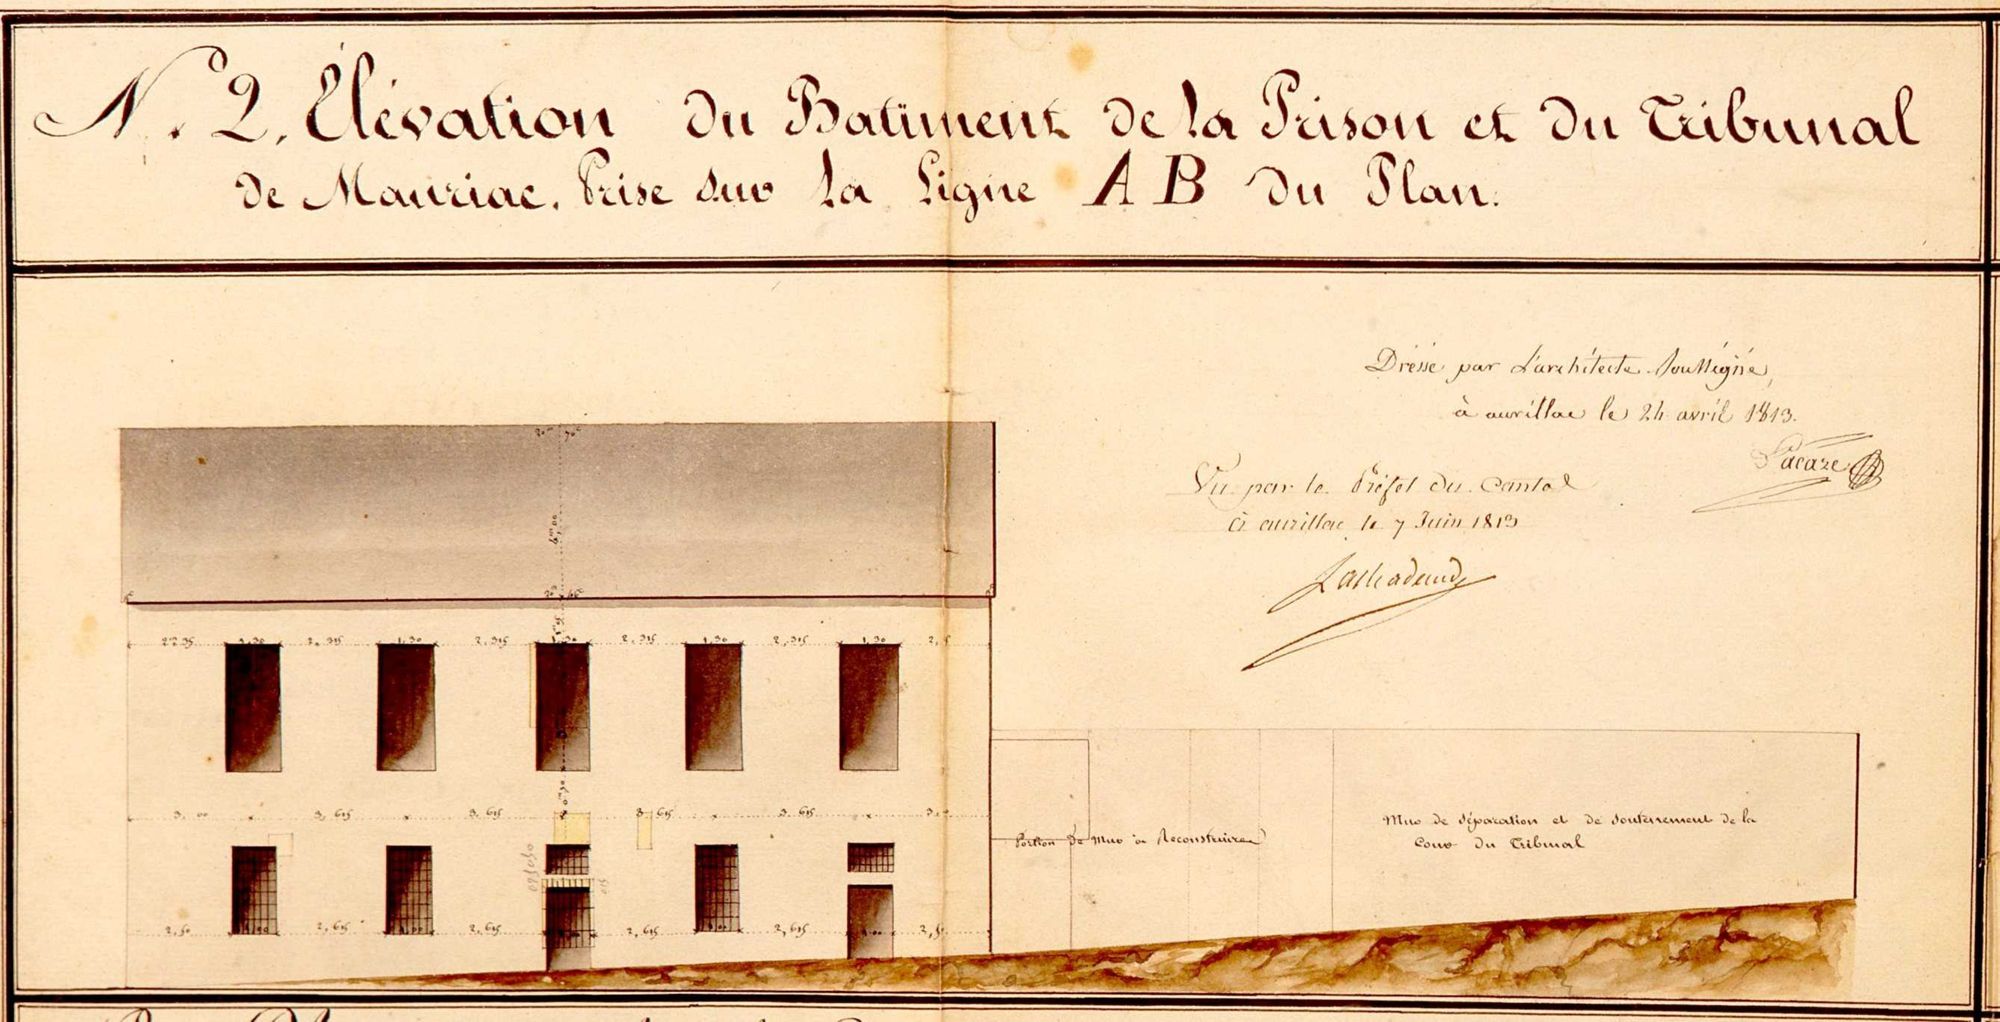 N.° 2. Élévation du Batiment de la Prison et du Tribunal
de Mauriac. Prise sur la Ligne A B du Plan.
Dressé par L'architecte Soussigné,
à aurillac le 24 avril 1813.
Lacaze
Vu par le Préfet du Cantal
à aurillac le 7 Juin 1813
20 70
6,00
2,315 1,30 2,315 1,30 2,315 1,30 2,315 1,30
3,00 3,615 3,615 3,615 3,615
Portion de Mur à Reconstruire
Mur de séparation et de soutenement de la
Cour du Tribunal
2,50 1,00 2,615 2,615 2,615 1,00 2,615 1,00 2,50